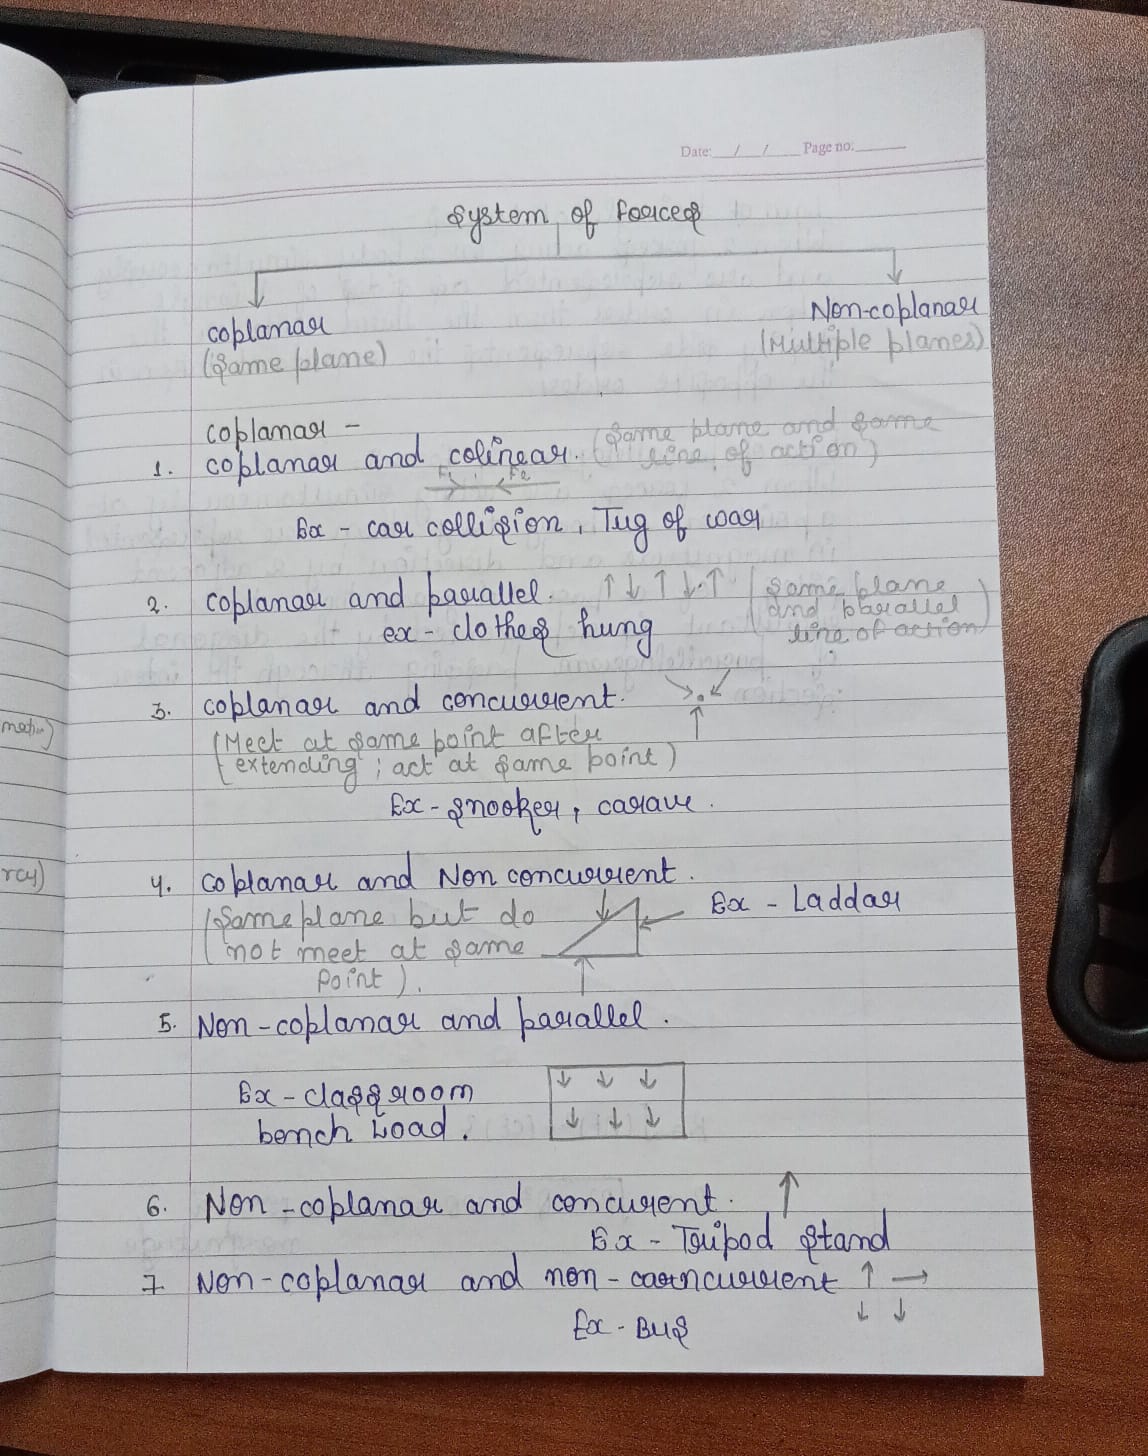 Date: __/__/__ Page no: ____
System of forces
coplanar
Non-coplanar
(same plane)
(Multiple planes)
coplanar -
1. coplanar and colinear. (same plane and same
line of action)
F1 F2
Ex - car collision, Tug of war
2. coplanar and parallel. ↑ ↓ ↑ ↓ . ↑ (same plane
and parallel
line of action)
ex - clothes hung
3. coplanar and concurrent.
(Meet at same point after
extending ; act at same point)
Ex - snooker,
4. coplanar and Non concurrent.
Ex - Laddar
(same plane but do
not meet at same
point).
5. Non-coplanar and parallel.
Ex - classroom
bench Load.
↓ ↓ ↓
↓ ↓ ↓
6. Non-coplanar and concurent. ↑
Ex - Tripod stand
7. Non-coplanar and non-concurrent ↑ →
↓ ↓
Ex - Bus
rcy)